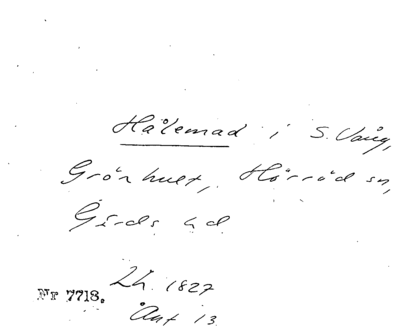 Hålemad i S. Vång,
Grönhult, Hörröd sn,
Gärds hd
Nr 7718. Lh. 1827
Ant 13